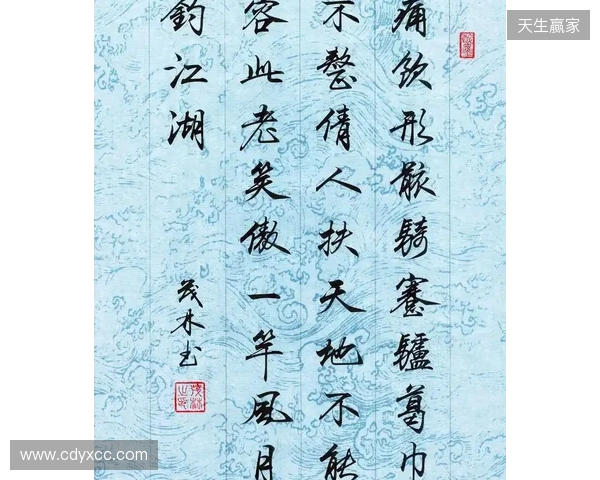 痛饮形骸騎蹇驢葛巾
不整倩人扶天地不能
容此老笑傲一竿風月
釣江湖
茂林书
天生赢家
www.cdyxcc.com